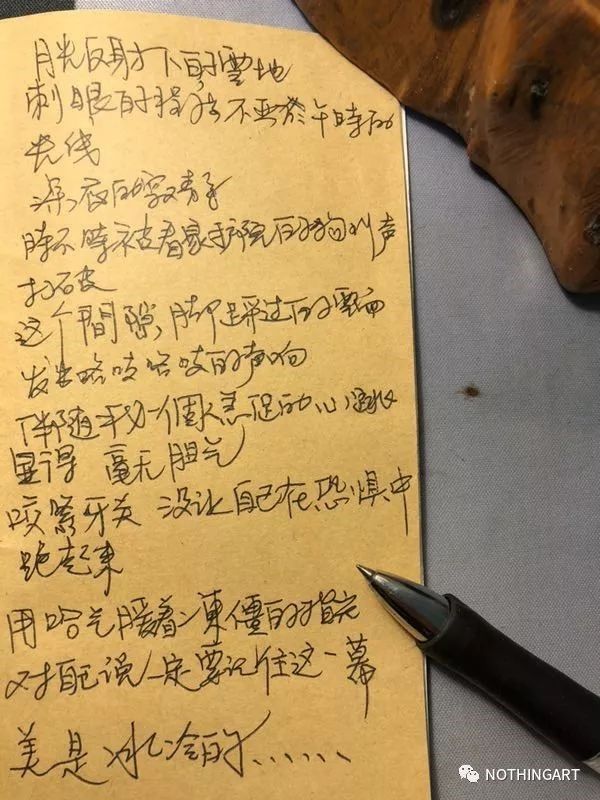 月光反射下的雪地
刺眼的程度不亞於午時的
光线
深夜的寂静
時不時被看家护院的狗叫声
打破
这个間隙,脚足踩过的雪面
发出咯吱咯吱的声响
伴随我一個人急促的心跳
显得 毫无胆气
咬緊牙关 没让自己在恐惧中
跑起来
用哈气暖着凍僵的指尖
对自己说一定要记住这一幕
美是冰冷的......
NOTHINGART